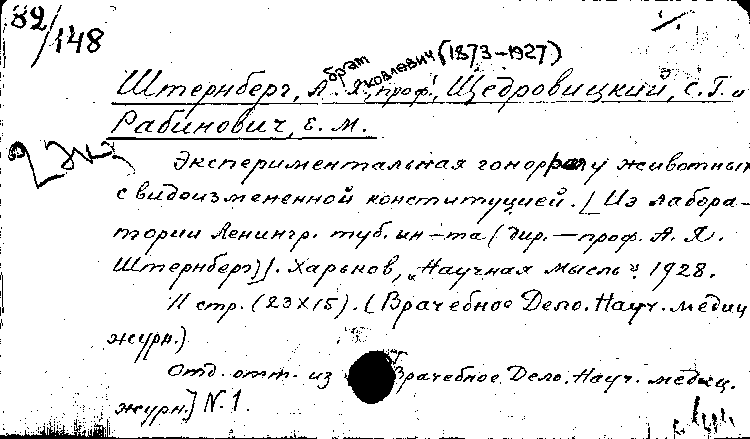 82/148
брат Яковлевич (1873-1927)
Штернберг, А. Я., проф., Щедровицкий, С. Г. и
Рабинович, Е. М.
2 экз
Экспериментальная гоноррея у животных
с видоизмененной конституцией. [Из лабора-
тории Ленингр. туб. ин-та (дир. — проф. А. Я.
Штернберг)]. Харьков, „Научная мысль". 1928.
11 стр. (23x15). [Врачебное Дело. Науч. медиц
журн.)
Отд. отт. из Врачебное Дело. Науч. медиц.
журн.] N. 1.